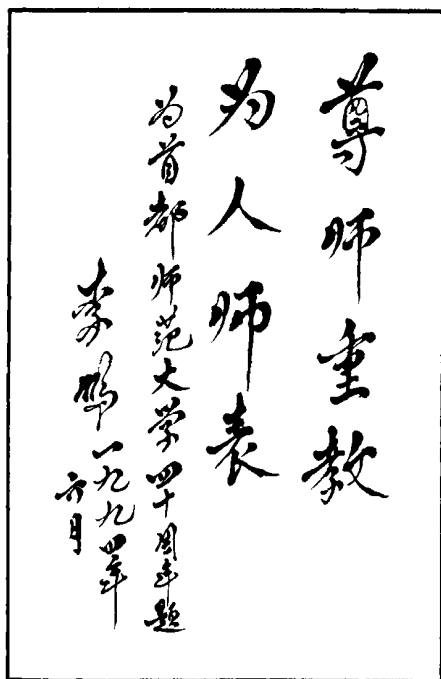 尊师重教
为人师表
为首都师范大学四十周年题
李鹏 一九九四年
六月